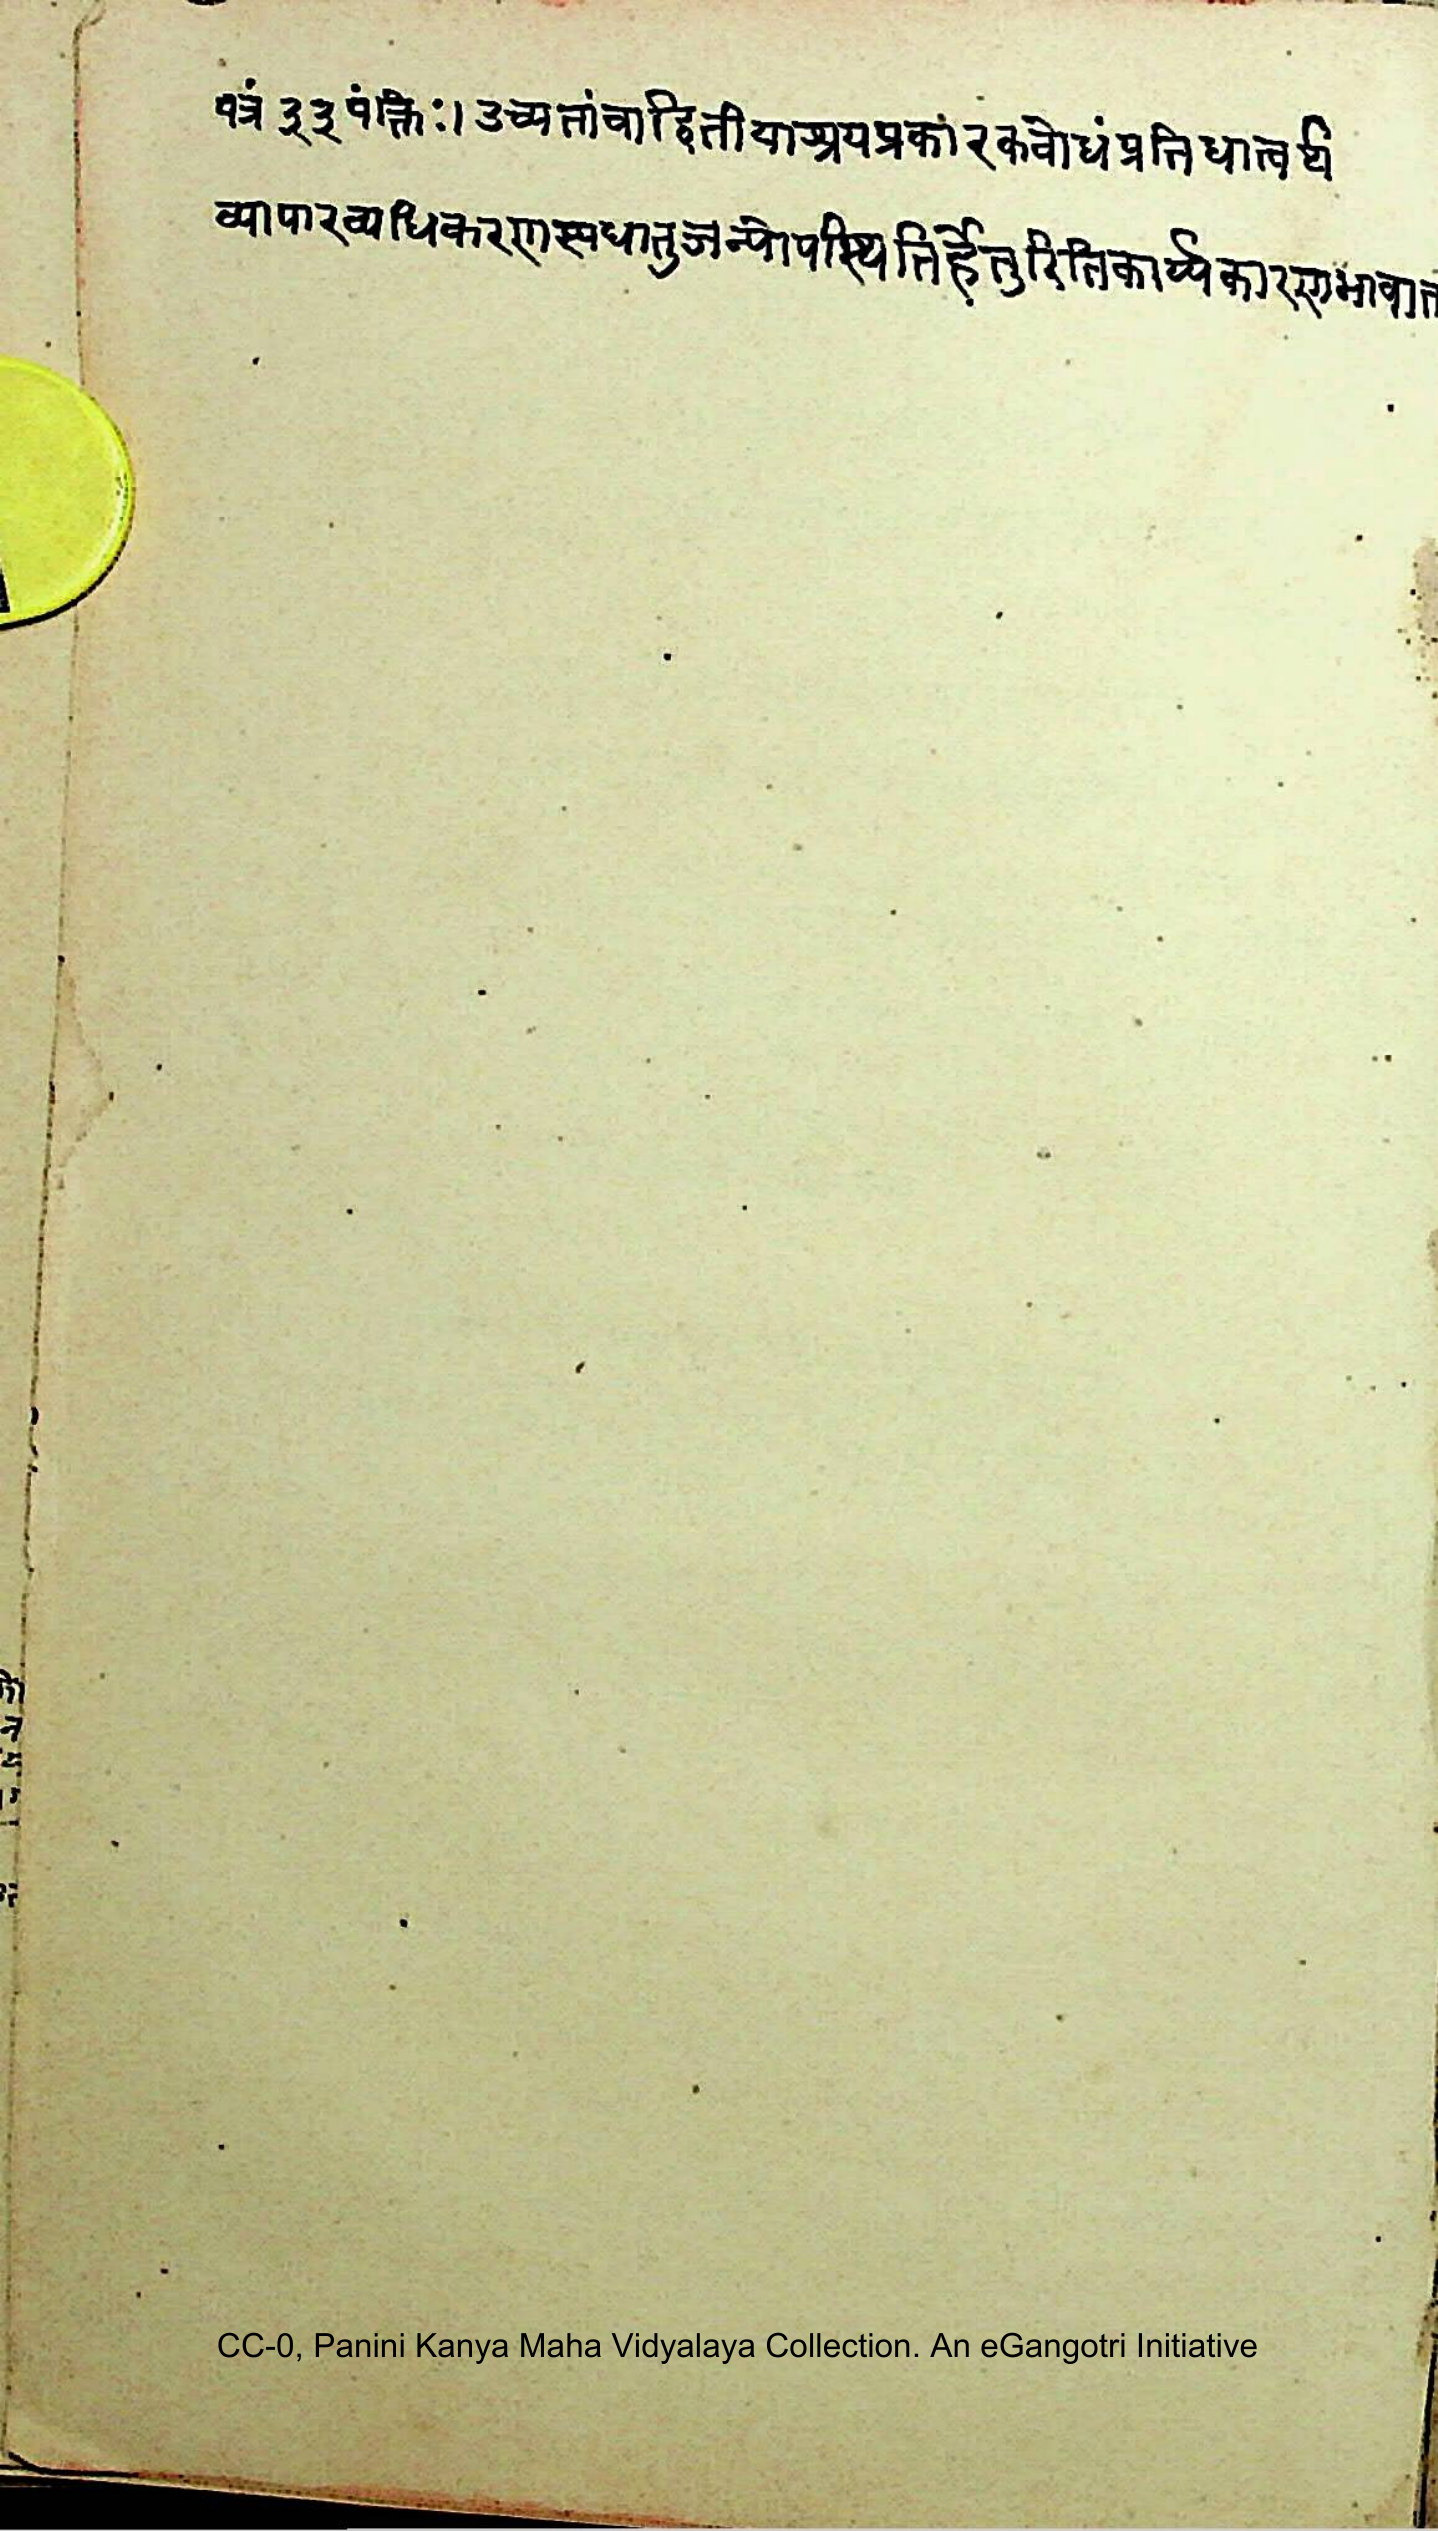 पत्रं ३३ पंक्तिः। उच्यतांवाद्वितीयाश्रयप्रकारकवोधंप्रतिधात्वर्थ
व्यापारव्यधिकरणस्वधातुजन्योपस्थितिर्हेतुरितिकार्य्यकारणभावात
CC-0, Panini Kanya Maha Vidyalaya Collection. An eGangotri Initiative